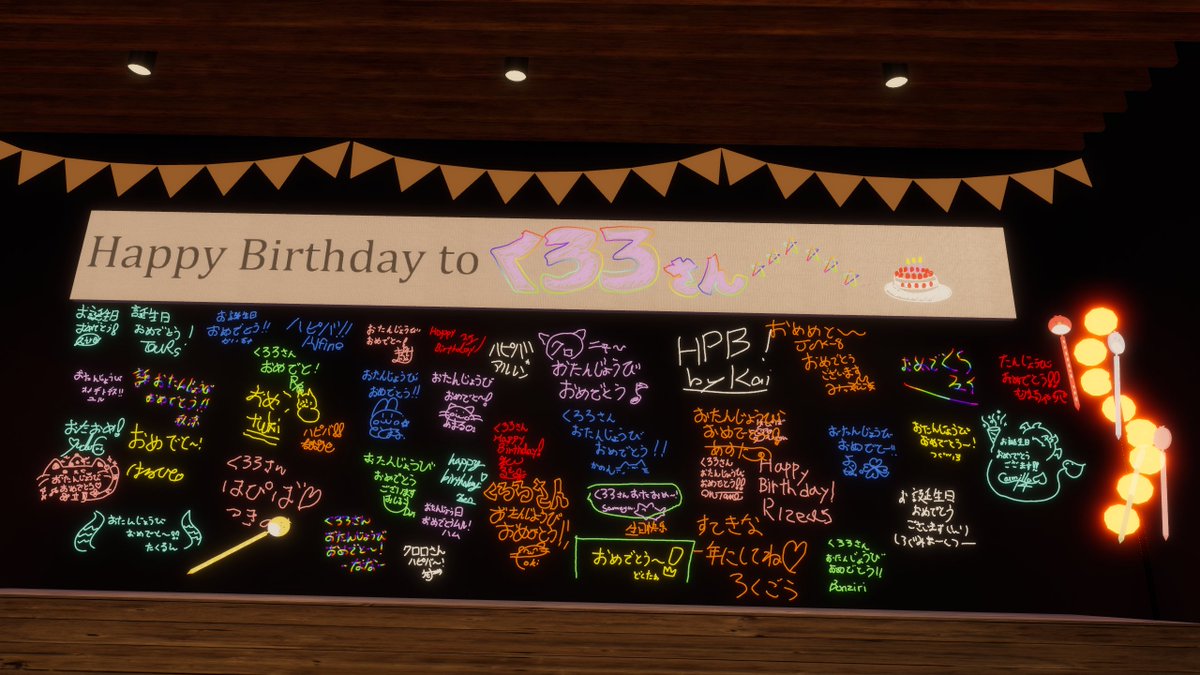 Happy Birthday to くろろさん
お誕生日
おめでとう!
誕生日
おめでとう!
お誕生日
おめでとう!!
ハピバ!!
Alfino
おたんじょうび
おめでと〜!
Happy
Birthday!
ハピバ!!
アルレン
クロロ
ニャ〜
おたんじょうび
おめでとう♪
HPB!
by Kai
おめでと〜
おめでとう
ございます
たんじょうび
おめでとう!!
おたんじょうび
おたんじょうび
おめでとう!!
くろろさん
おめでと!
おめ
Yuki
ハピバ!!
おたんじょうび
おめでとう!!
おたんじょうび
おめでとう!!
くろろさん
おたんじょうび
おめでとう!!
おたんじょうび
おめでとう
おたんじょうび
おめでとう
おたんじょうび
おめでと〜!
お誕生日
おめでとう
ございます!!
おたおめ!
おめでと〜!
おたんじょうび
おめでとう
くろろさん
はぴば♡
おたんじょうび
おめでとう
ございます
happy
birthday
くろろさん
Happy
Birthday!
くろろさん
おたんじょうび
おめでとう!!
Happy
Birthday!
Rizeas
くろろさんおたおめ〜!
生日快乐
おたんじょうび
おめでと〜!!
たくるん
くろろさん
おたんじょうび
おめでと〜!
-なな-
クロロさん
ハピバ〜!
おたんじょう日
おめでとうムル!
ハム
くろろさん
おたんじょうび
おめでとう!!
おめでとう〜!
すてきな
一年にしてね♡
ろくごう
くろろさん
おたんじょうび
おめでとう!!
Bonziri
お誕生日
おめでとう
ございます